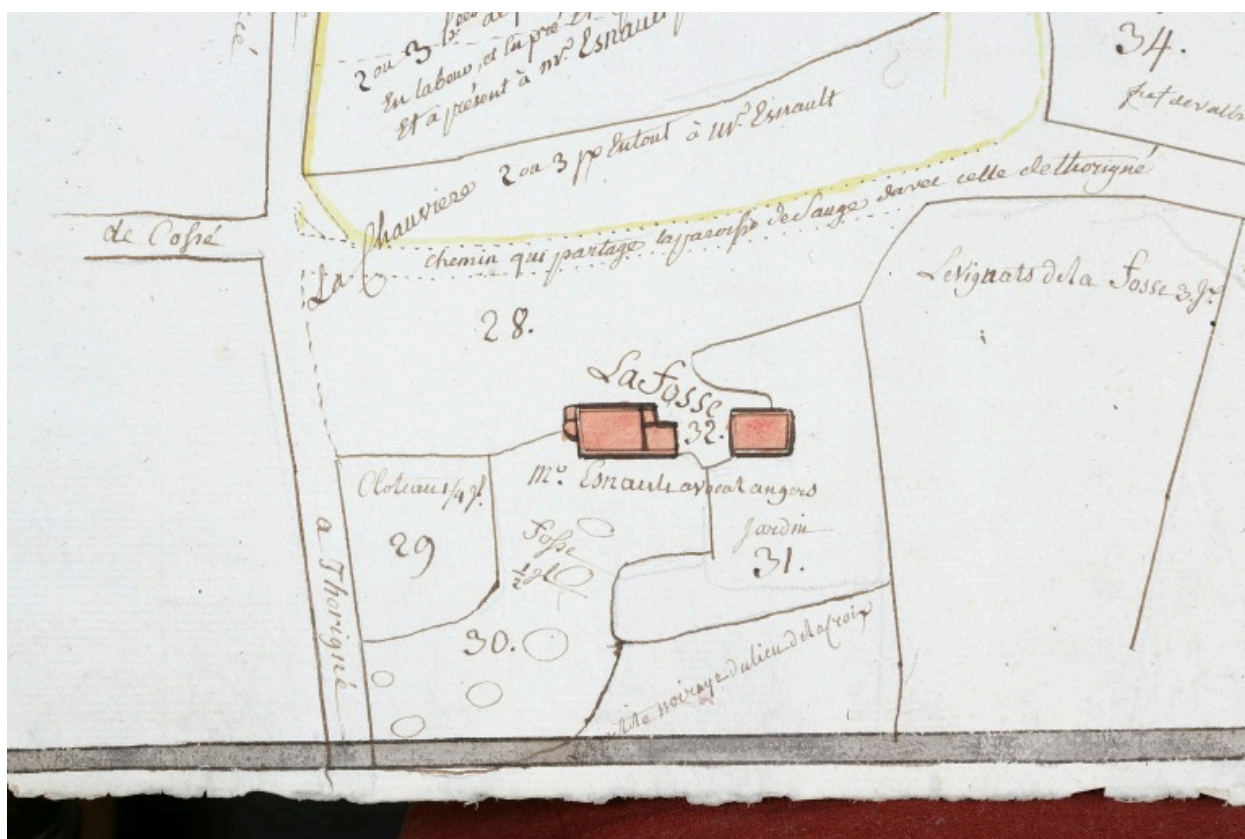 2 ou 3
En labour, et en pré
Et a present à mr. Esnault
La Chauviere 2 ou 3 jx Entout à Mr. Esnault
34.
de Cossé
chemin qui partage la paroisse de Sauge davec celle de thorigné
Le Vignats de la fosse 3. Jx
28.
La fosse
32.
Mr. Esnault avocat angers
Cloteau 1/4 Jl.
29
Fosse
1/2 Jl
Jardin
31.
30.
a Thorigné
noiraye du lieu de la Croix